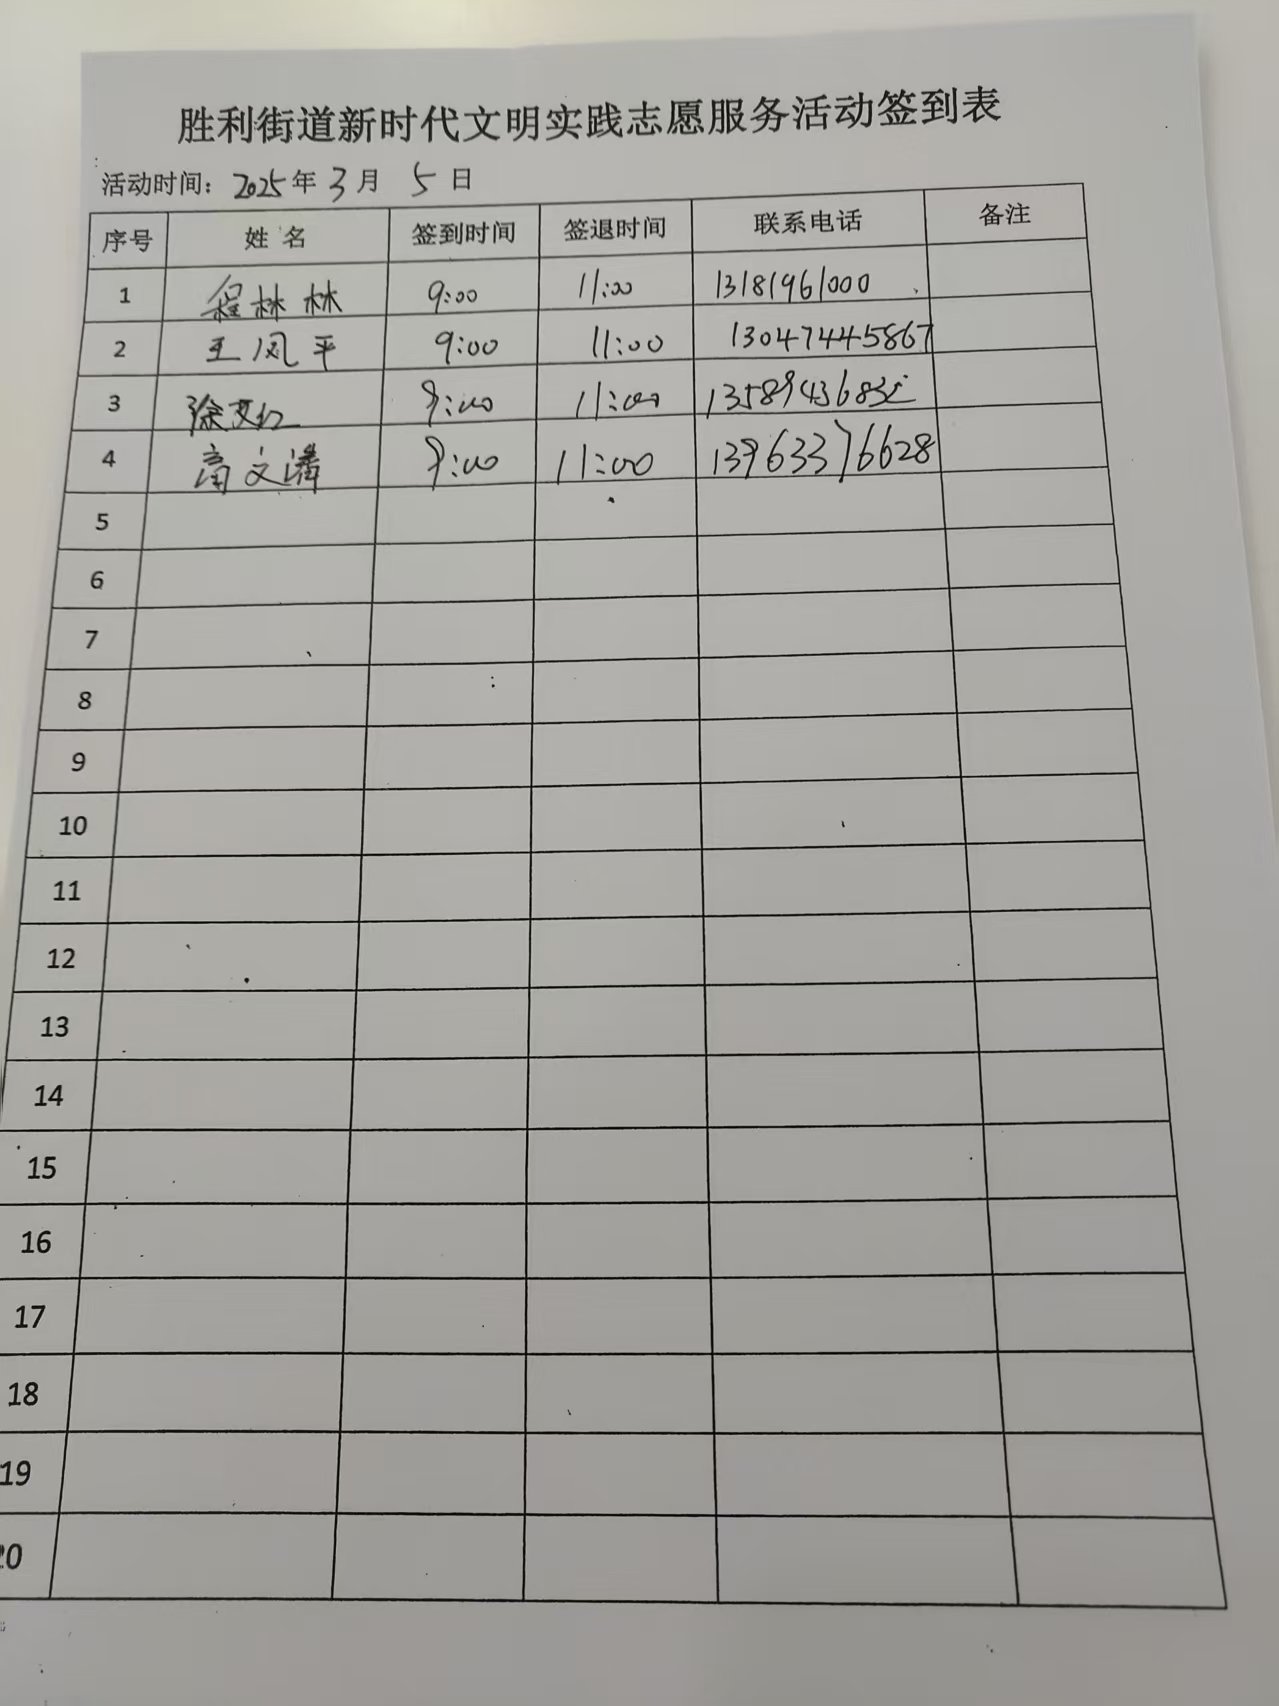 胜利街道新时代文明实践志愿服务活动签到表
活动时间: 2025年 3月 5日
序号 姓名 签到时间 签退时间 联系电话 备注
1 程林林 9:00 11:00 13181961000
2 王凤平 9:00 11:00 13047445867
3 徐 9:00 11:00
4 高文潘 9:00 11:00 13963376628
5
6
7
8
9
10
11
12
13
14
15
16
17
18
19
20